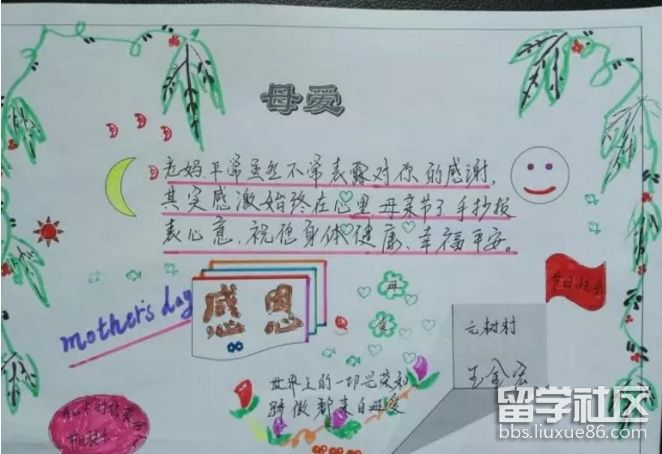 母爱
老妈平常虽然不常表露对你的感谢,
其实感激始终在心里 母亲节了 手抄报
表心意,祝您身体健康、幸福平安。
mother's day
感恩
母
节日快乐
元村村
世界上的一切光荣和
骄傲都来自母爱
节日快乐
留学社区
bbs.liuxue86.com